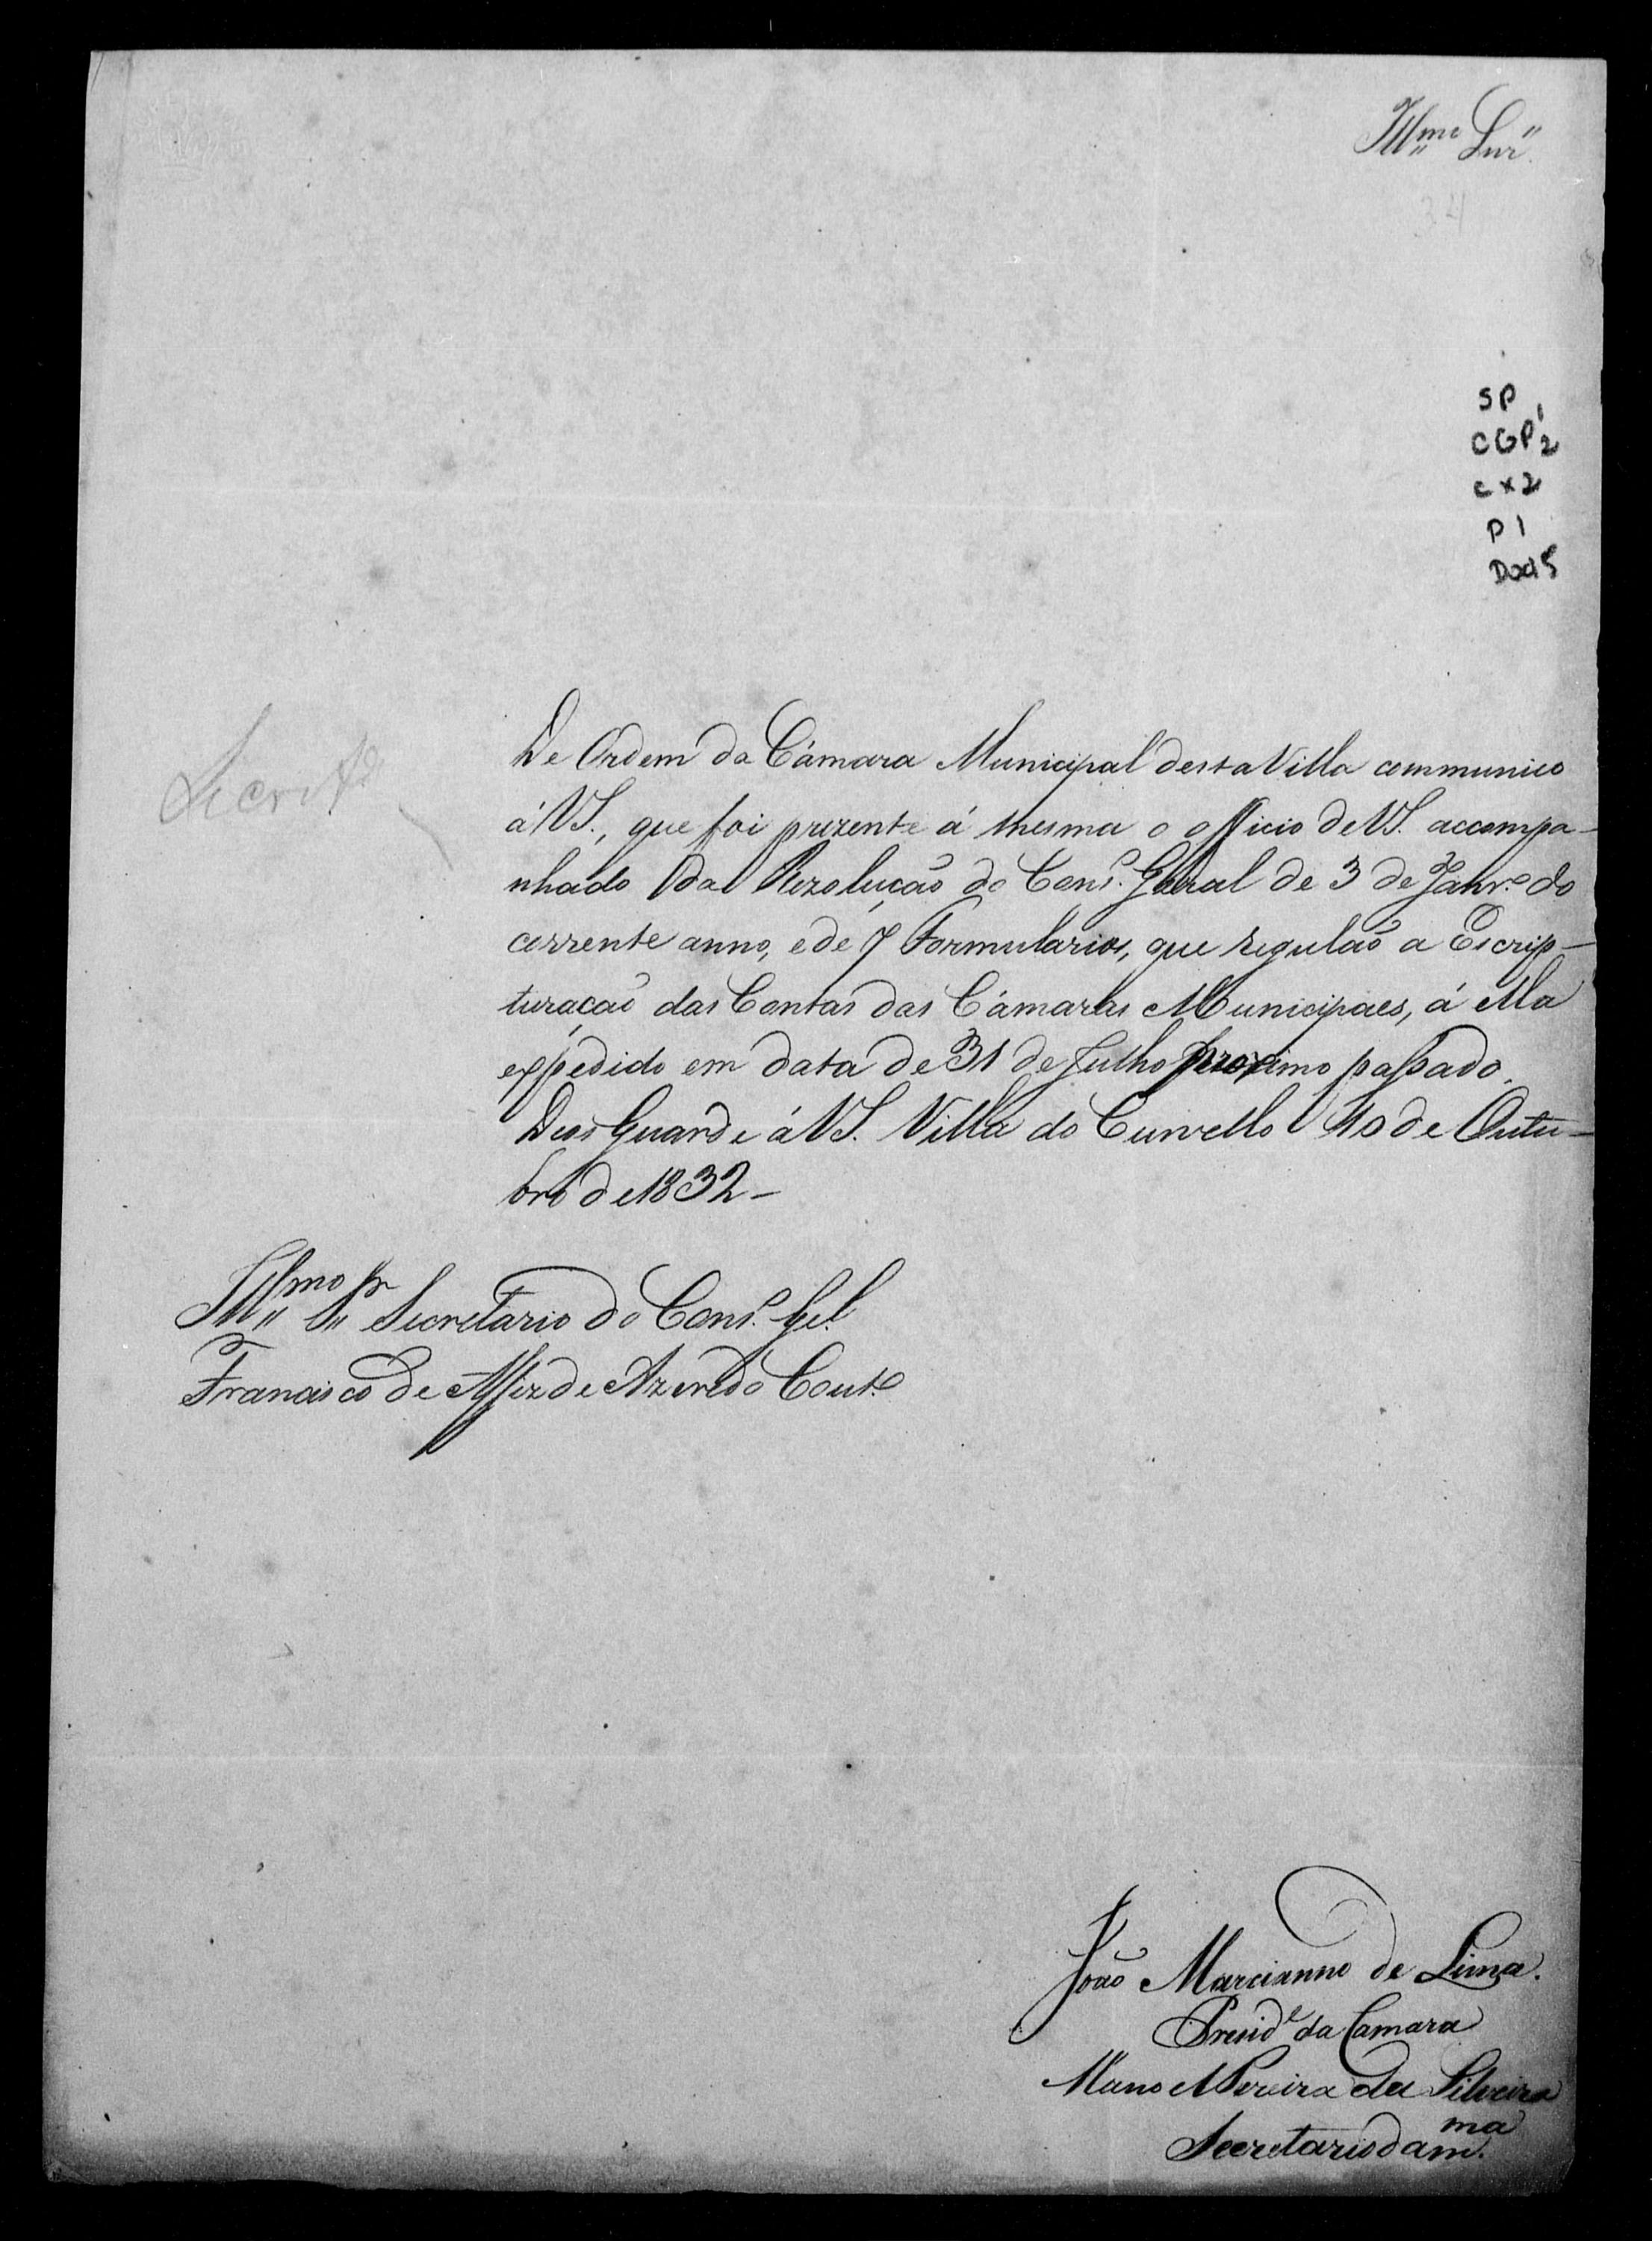 Illmo Snr
34
SP 1
CGP 2
cx2
P1
Doc 15
De Ordem da Câmara Municipal desta Villa communico
á VS., que foi prezente á mesma o officio de VS. accompa-
nhado da Rezolução do Consº. Geral de 3 de Janrº do
corrente anno, e de 7 Formularios, que regulão a Escrip-
turação das Contas das Câmaras Municipaes, á ella
expedido em data de 31 de Julho proximo passado.
Deos Guarde á VS. Villa do Curvello 10 de Outu-
bro de 1832-
Illmo Snr Secretario do Consº. Gel.
Francisco de Assiz de Azeredo Coutº
João Marcianno de Lima.
Preside da Camara
Manoel Pereira da Silveira
Secretario da mma